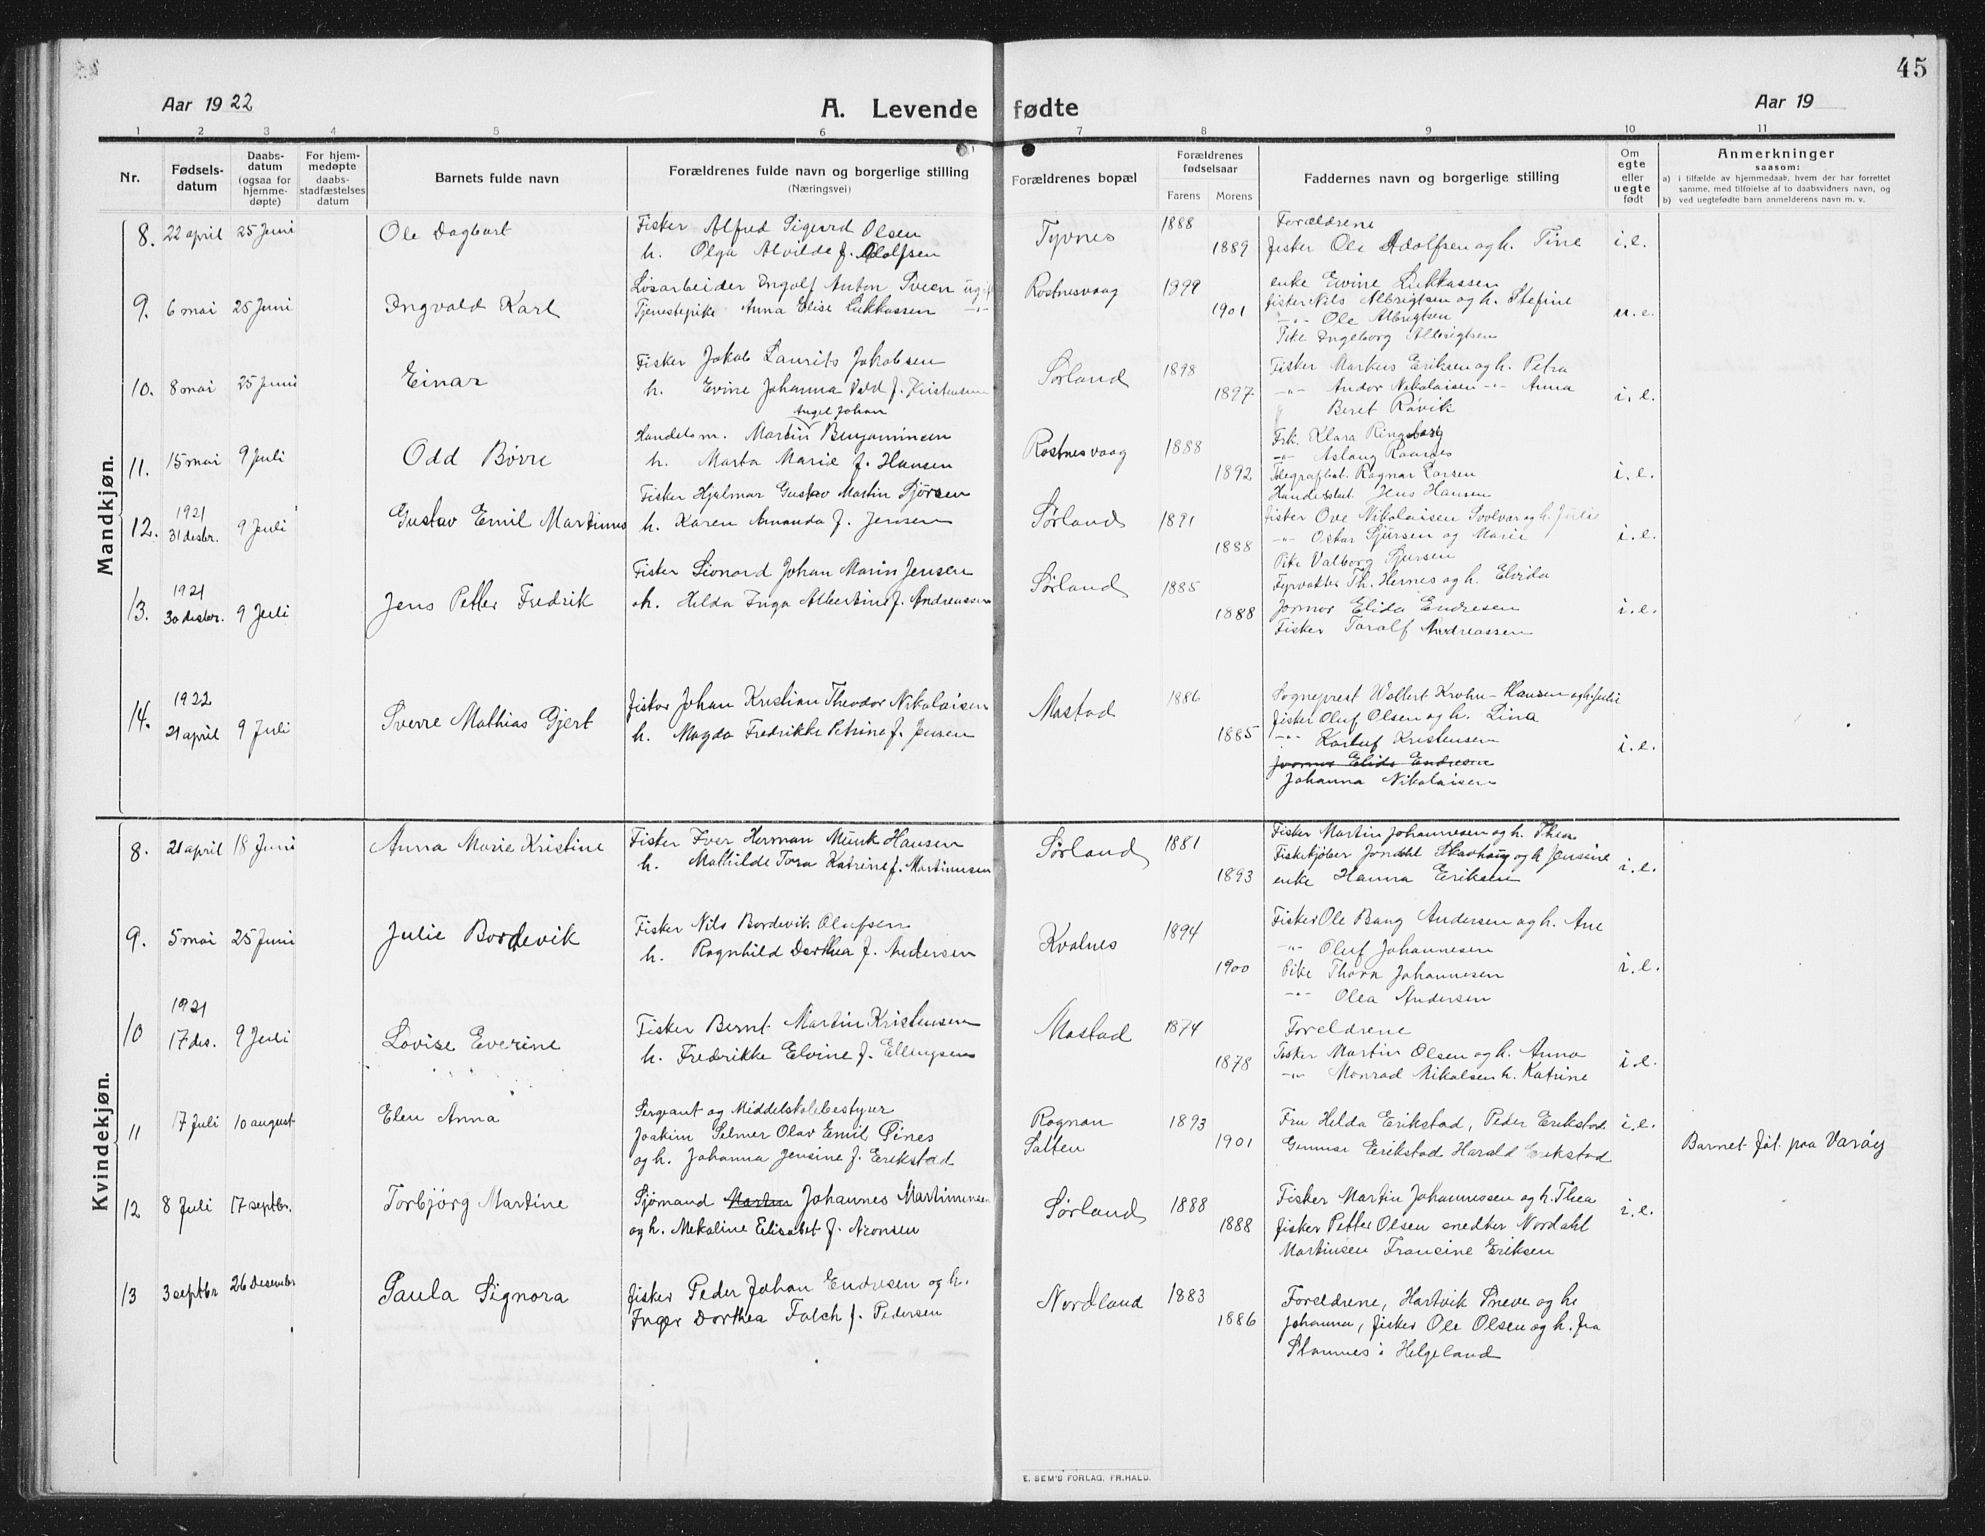 45
Aar 1922
A. Levende fødte
Aar 19
1 2 3 4 5 6 7 8 9 10 11
Nr.
Fødsels-datum
Daabs-datum (ogsaa for hjemme-døpte)
For hjem-medøpte daabs-stadfæstelses datum
Barnets fulde navn
Forældrenes fulde navn og borgerlige stilling (Næringsvei)
Forældrenes bopæl
Forældrenes fødselsaar
Farens Morens
Faddernes navn og borgerlige stilling
Om egte eller uegte født
Anmerkninger
saasom:
a) i tilfælde av hjemmedaab, hvem der har forrettet samme, med tilføielse af to daabsvidners navn, og
b) ved uegtefødte barn anmelderens navn m. v.
Mandkjøn.
8. 22 april 25 Juni Ole Dagbart
Fisker Alfred Sigurd Olsen
h. Olga Alvilde f. Adolfsen
Tyvnes 1888 1889
Forældrene
fisker Ole Adolfsen og h. Tine
i.e.
9. 6 mai 25 Juni Ingvald Karl
Løsarbeider Ingolf Anton Sveen ugift
Tjenestepike Anna Elise Lukkassen -"-
Rostnesvaag 1899 1901
enke Evine Lukkassen
fisker Nils Albrigtsen og h. Stefine
-"- Ole Albrigtsen
Pike Ingeborg Albrigtsen
u.e.
10. 8 mai 25 Juni Einar
Fisker Jakob Laurits Jakobsen
h. Evine Johanna Vald f. Kristensen
Sørland 1898 1897
Fisker Markus Eriksen og h. Petra
-"- Andor Nikolaisen -"- Anna
" Beret Røvik
i.e.
11. 15 mai 9 Juli Odd Børre
Angel Johan
Handelsm. Martin Benjaminsen
h. Marta Marie f. Hansen
Rostnesvaag 1888 1892
Frk. Klara Ringsborg
-"- Aslaug Raanes
Telegrafbest. Ragnar Larsen
Handelsbet. Jens Hansen
i.e.
12. 1921 31 desbr. 9 Juli Gustav Emil Martinus
Fisker Hjalmar Gustav Martin Sjørsen
h. Karen Amanda f. Jensen
Sørland 1891 1888
fisker Ove Nikolaisen Soolvar og h. Julie
-"- Oskar Sjursen og Marie
Pike Valborg Sjursen
i.e.
13. 1921 30 desbr. 9 Juli Jens Petter Fredrik
Fisker Leonard Johan Marin Jensen
oh. Hilda Inga Albertine f. Andreassen
Sørland 1885 1888
Fyrvokter Th. Hernes og h. Elvida
Jormor Elida Endresen
Fisker Toralf Andreassen
i.e.
14. 1922 21 april 9 Juli Sverre Mathias Gjert
fisker Johan Kristian Theodor Nikolaisen
h. Magda Fredrikke Petrine f. Jensen
Mastad 1886 1885
Sogneprest Wollert Krohn-Hansen og h. Julie
fisker Oluf Olsen og h. Lina
-"- Karluf Kristensen
Jormor Elida Endresen
Johanna Nikolaisen
i.e.
Kvindekjøn.
8. 21 april 18 Juni Anna Marie Kristine
Fisker Iver Herman Munk Hansen
h. Mathilde Tora Katrine f. Martinusen
Sørland 1881 1893
Fisker Martin Johannesen og h. Thea
Fiskekjøber Jondahl Skavhaug og h Jensine
enke Hanna Eriksen
i.e.
9. 5 mai 25 Juni Julie Bordevik
Fisker Nils Bordevik Olufsen
h. Ragnhild Dorthea f. Andersen
Kvalnes 1894 1900
Fisker Ole Bang Andersen og h. Ane
-"- Oluf Johannesen
Pike Thora Johannesen
-"- Olea Andersen
i.e.
10 1921 17 des. 9 Juli Lovise Everine
Fisker Bernt Martin Kristensen
h. Fredrikke Elvine f. Ellingsen
Mastad 1874 1878
Foreldrene
Fisker Martin Olsen og h. Anna
-"- Monrad Nikolsen h. Katrine
i.e.
11 17 Juli 10 august Elen Anna
Sergeant og Middelskolebestyrer
Joakim Selmer Olav Emil Pines
og h. Johanna Jensine f. Erikstad
Rognan
Salten
1893 1901
Fru Hilda Erikstad, Peder Erikstad
Gunnar Erikstad Harald Erikstad
i.e.
Barnet føt. paa Værøy
12 8 Juli 17 septbr. Torbjørg Martine
Sjømand Martin Johannes Martinusen
og h. Mekaline Elisabet f. Aronsen
Sørland 1888 1888
Fisker Martin Johannessen og h. Thea
fisker Petter Olsen snedker Nordahl
Martinsen Fransine Eriksen
i.e.
13 3 septbr 26 Desember Paula Signora
fisker Peder Johan Endresen og h.
Inger Dorthea Falch f. Pedersen
Nordland 1883 1886
Foreldrene, Hartvik Sneve og h
Johanna, fisker Ole Olsen og h. fra
Stamnes i Helgeland
E. SEM'S FORLAG, FR.HALD.